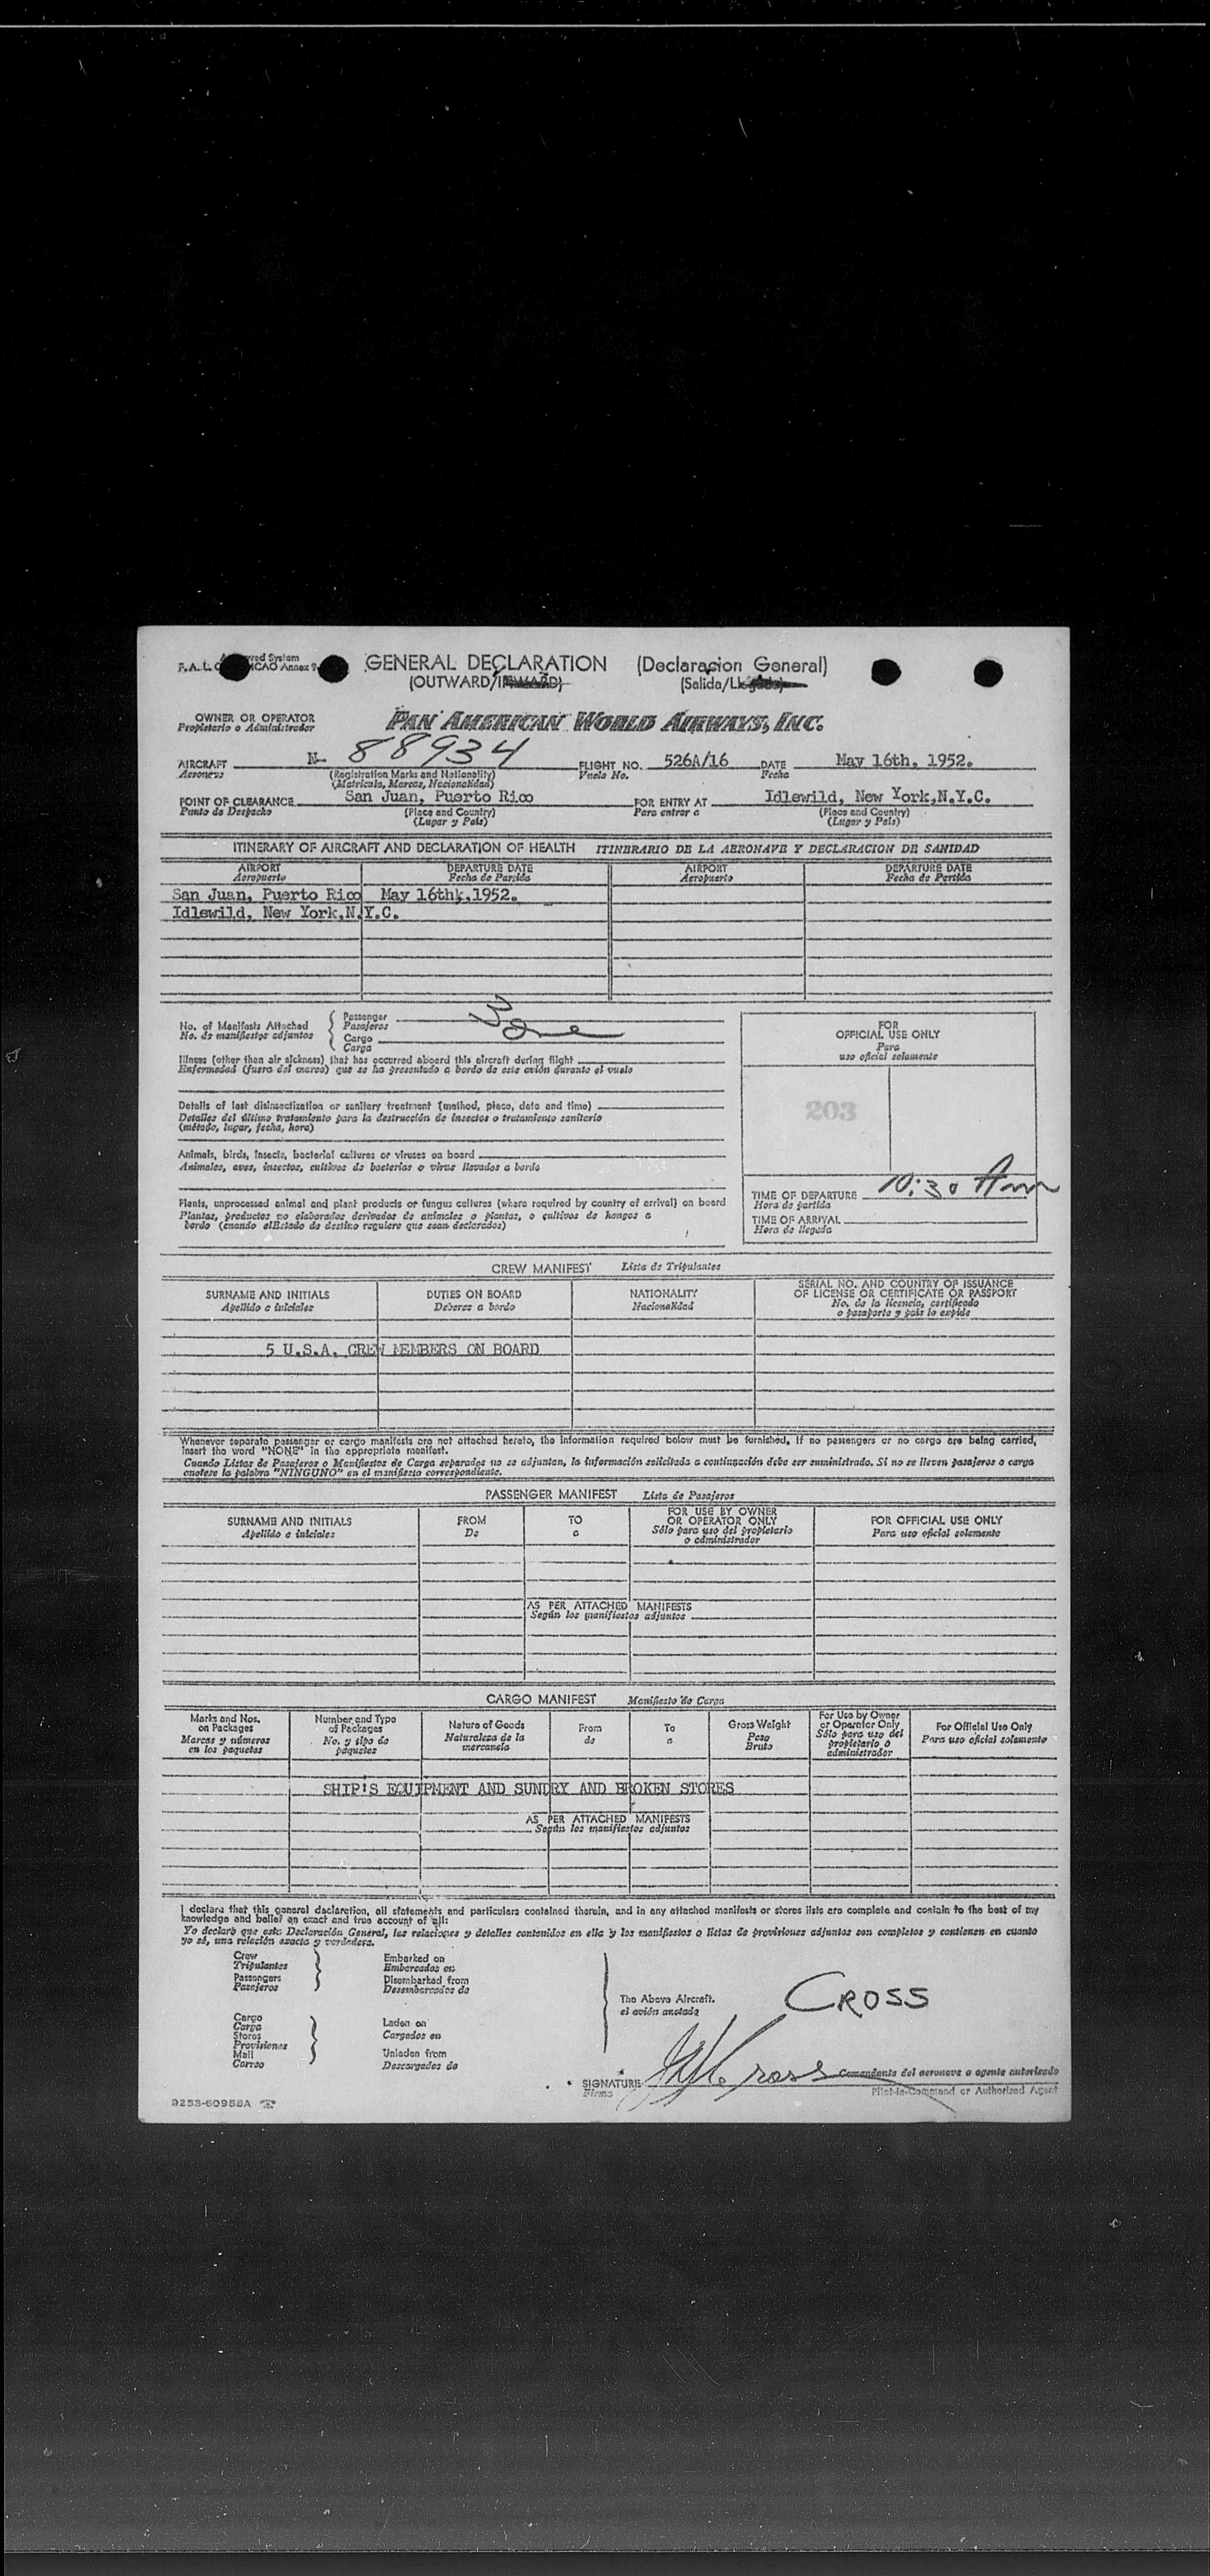 GENERAL DECLARATION (Declaración General)
(OUTWARD/INWARD) (Salida/Llegada)
OWNER OR OPERATOR
Propietario o Administrador
PAN AMERICAN WORLD AIRWAYS, INC.
AIRCRAFT N- 88934 FLIGHT NO. 526A/16 DATE May 16th, 1952.
Aeronave (Registration Marks and Nationality) Vuelo No. Fecha
(Matrícula, Marcas, Nacionalidad)
POINT OF CLEARANCE San Juan, Puerto Rico FOR ENTRY AT Idlewild, New York,N.Y.C.
Punto de Despacho (Place and Country) Para entrar a (Place and Country)
(Lugar y País) (Lugar y País)
ITINERARY OF AIRCRAFT AND DECLARATION OF HEALTH ITINERARIO DE LA AERONAVE Y DECLARACION DE SANIDAD
AIRPORT DEPARTURE DATE AIRPORT DEPARTURE DATE
Aeropuerto Fecha de Partida Aeropuerto Fecha de Partida
San Juan, Puerto Rico May 16thk,1952.
Idlewild, New York,N.Y.C.
No. of Manifests Attached
No. de manifiestos adjuntos
Passenger 3
Pasajeros
Cargo one
Carga
Illness (other than air sickness) that has occurred aboard this aircraft during flight
Enfermedad (fuera del mareo) que se ha presentado a bordo de este avión durante el vuelo
Details of last disinsectization or sanitary treatment (method, place, date and time)
Detalles del último tratamiento para la destrucción de insectos o tratamiento sanitario
(método, lugar, fecha, hora)
Animals, birds, insects, bacterial cultures or viruses on board
Animales, aves, insectos, cultivos de bacterias o virus llevados a bordo
Plants, unprocessed animal and plant products or fungus cultures (where required by country of arrival) on board
Plantas, productos no elaborados derivados de animales o plantas, o cultivos de hongos a
bordo (cuando elEstado de destino requiere que sean declarados)
FOR
OFFICIAL USE ONLY
Para
uso oficial solamente
203
TIME OF DEPARTURE 10:30 Am
Hora de partida
TIME OF ARRIVAL
Hora de llegada
CREW MANIFEST Lista de Tripulantes
SURNAME AND INITIALS DUTIES ON BOARD NATIONALITY SERIAL NO. AND COUNTRY OF ISSUANCE
OF LICENSE OR CERTIFICATE OR PASSPORT
Apellido e iniciales Deberes a bordo Nacionalidad No. de la licencia, certificado
o pasaporte y país lo expide
5 U.S.A. CREW MEMBERS ON BOARD
Whenever separate passenger or cargo manifests are not attached hereto, the information required below must be furnished. If no passengers or no cargo are being carried,
insert the word "NONE" in the appropriate manifest.
Cuando Listas de Pasajeros o Manifiestos de Carga separados no se adjuntan, la información solicitada a continuación debe ser suministrado. Si no se lleven pasajeros o carga
anótese la palabra "NINGUNO" en el manifiesto correspondiente.
PASSENGER MANIFEST Lista de Pasajeros
SURNAME AND INITIALS FROM TO FOR USE BY OWNER
OR OPERATOR ONLY FOR OFFICIAL USE ONLY
Apellido e iniciales De a Sólo para uso del propietario
o administrador Para uso oficial solamente
AS PER ATTACHED MANIFESTS
Según los manifiestos adjuntos
CARGO MANIFEST Manifiesto de Carga
Marks and Nos.
on Packages
Marcas y números
en los paquetes
Number and Type
of Packages
No. y tipo de
paquetes
Nature of Goods
Naturaleza de la
mercancía
From
de
To
a
Gross Weight
Peso
Bruto
For Use by Owner
or Operator Only
Sólo para uso del
propietario o
administrador
For Official Use Only
Para uso oficial solamente
SHIP'S EQUIPMENT AND SUNDRY AND BROKEN STORES
AS PER ATTACHED MANIFESTS
Según los manifiestos adjuntos
I declare that this general declaration, all statements and particulars contained therein, and in any attached manifests or stores lists are complete and contain to the best of my
knowledge and belief an exact and true account of all:
Yo declaro que esta Declaración General, las relaciones y detalles contenidos en ella y los manifiestos o listas de provisiones adjuntos son completos y contienen en cuanto
yo sé, una relación exacta y verdadera.
Crew
Tripulantes
Passengers
Pasajeros
Embarked on
Embarcados en
Disembarked from
Desembarcados de
Cargo
Carga
Stores
Provisiones
Mail
Correo
Laden on
Cargados en
Unladen from
Descargados de
The Above Aircraft.
el avión anotado
CROSS
SIGNATURE
Firma
Comandante del aeronave o agente autorizado
Pilot-in-Command or Authorized Agent
9253-60958A